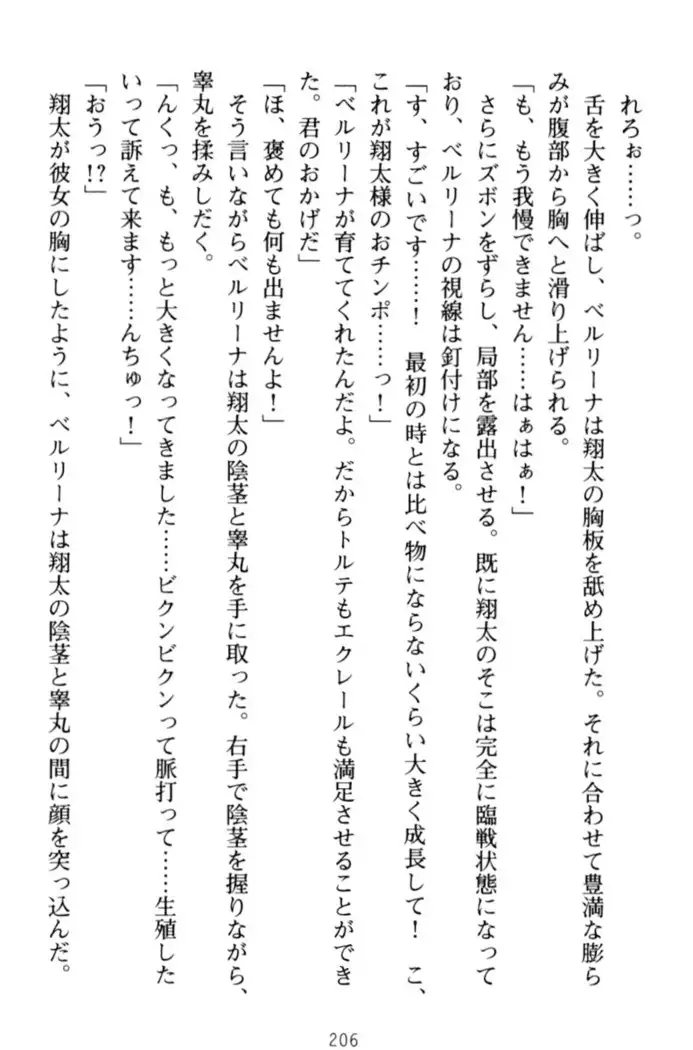 れろぉ……っ。
舌を大きく伸ばし、ベルリーナは翔太の胸板を舐め上げた。それに合わせて豊満な膨ら
みが腹部から胸へと滑り上げられる。
「も、もう我慢できません……はぁはぁ！」
さらにズボンをずらし、局部を露出させる。既に翔太のそこは完全に臨戦状態になって
おり、ベルリーナの視線は釘付けになる。
「す、すごいです……！　最初の時とは比べ物にならないくらい大きく成長して！　こ、
これが翔太様のおチンポ……っ！」
「ベルリーナが育ててくれたんだよ。だからトルテもエクレールも満足させることができ
た。君のおかげだ」
「ほ、褒めても何も出ませんよ！」
そう言いながらベルリーナは翔太の陰茎と睾丸を手に取った。右手で陰茎を握りながら、
睾丸を揉みしだく。
「んくっ、も、もっと大きくなってきました……ビクンビクンって脈打って……生殖した
いって訴えて来ます……んちゅっ！」
「おうっ!?」
翔太が彼女の胸にしたように、ベルリーナは翔太の陰茎と睾丸の間に顔を突っ込んだ。
206